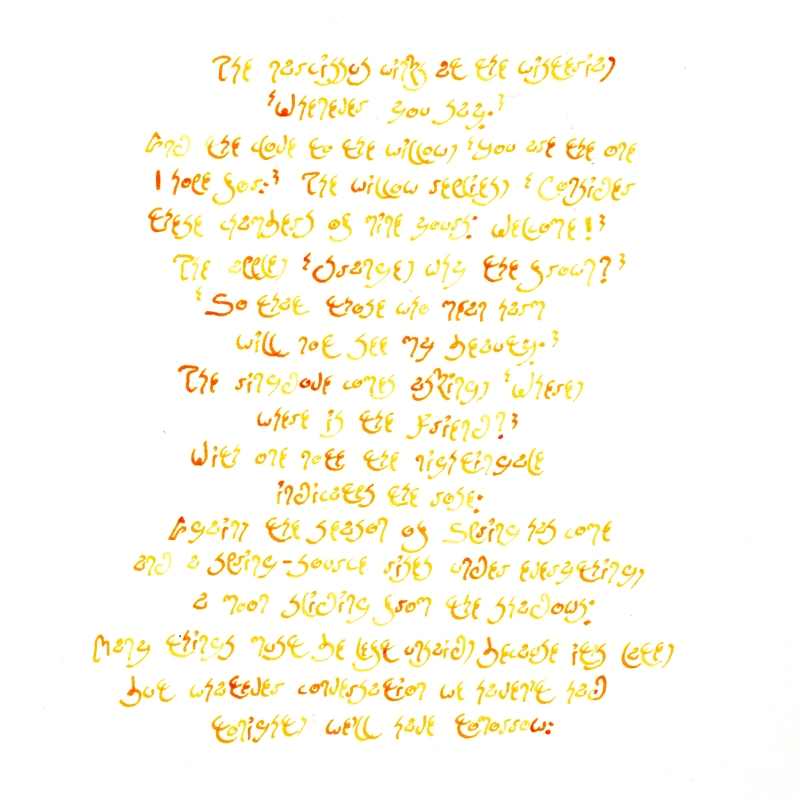 The narcissus winks at the wisteria,
'Whenever you say.'
And the clove to the willow, 'You are the one
I hope for.' The willow replies, 'Consider
these chambers of mine yours. Welcome!'
The apple, 'Orange, why the frown?'
'So that those who mean harm
will not see my beauty.'
The ringdove comes asking, 'Where,
where is the Friend?'
With one note the nightingale
indicates the rose.
Again, the season of Spring has come
and a spring-source rises under everything,
a moon sliding from the shadows.
Many things must be left unsaid, because it's late,
but whatever conversation we haven't had
tonight, we'll have tomorrow.